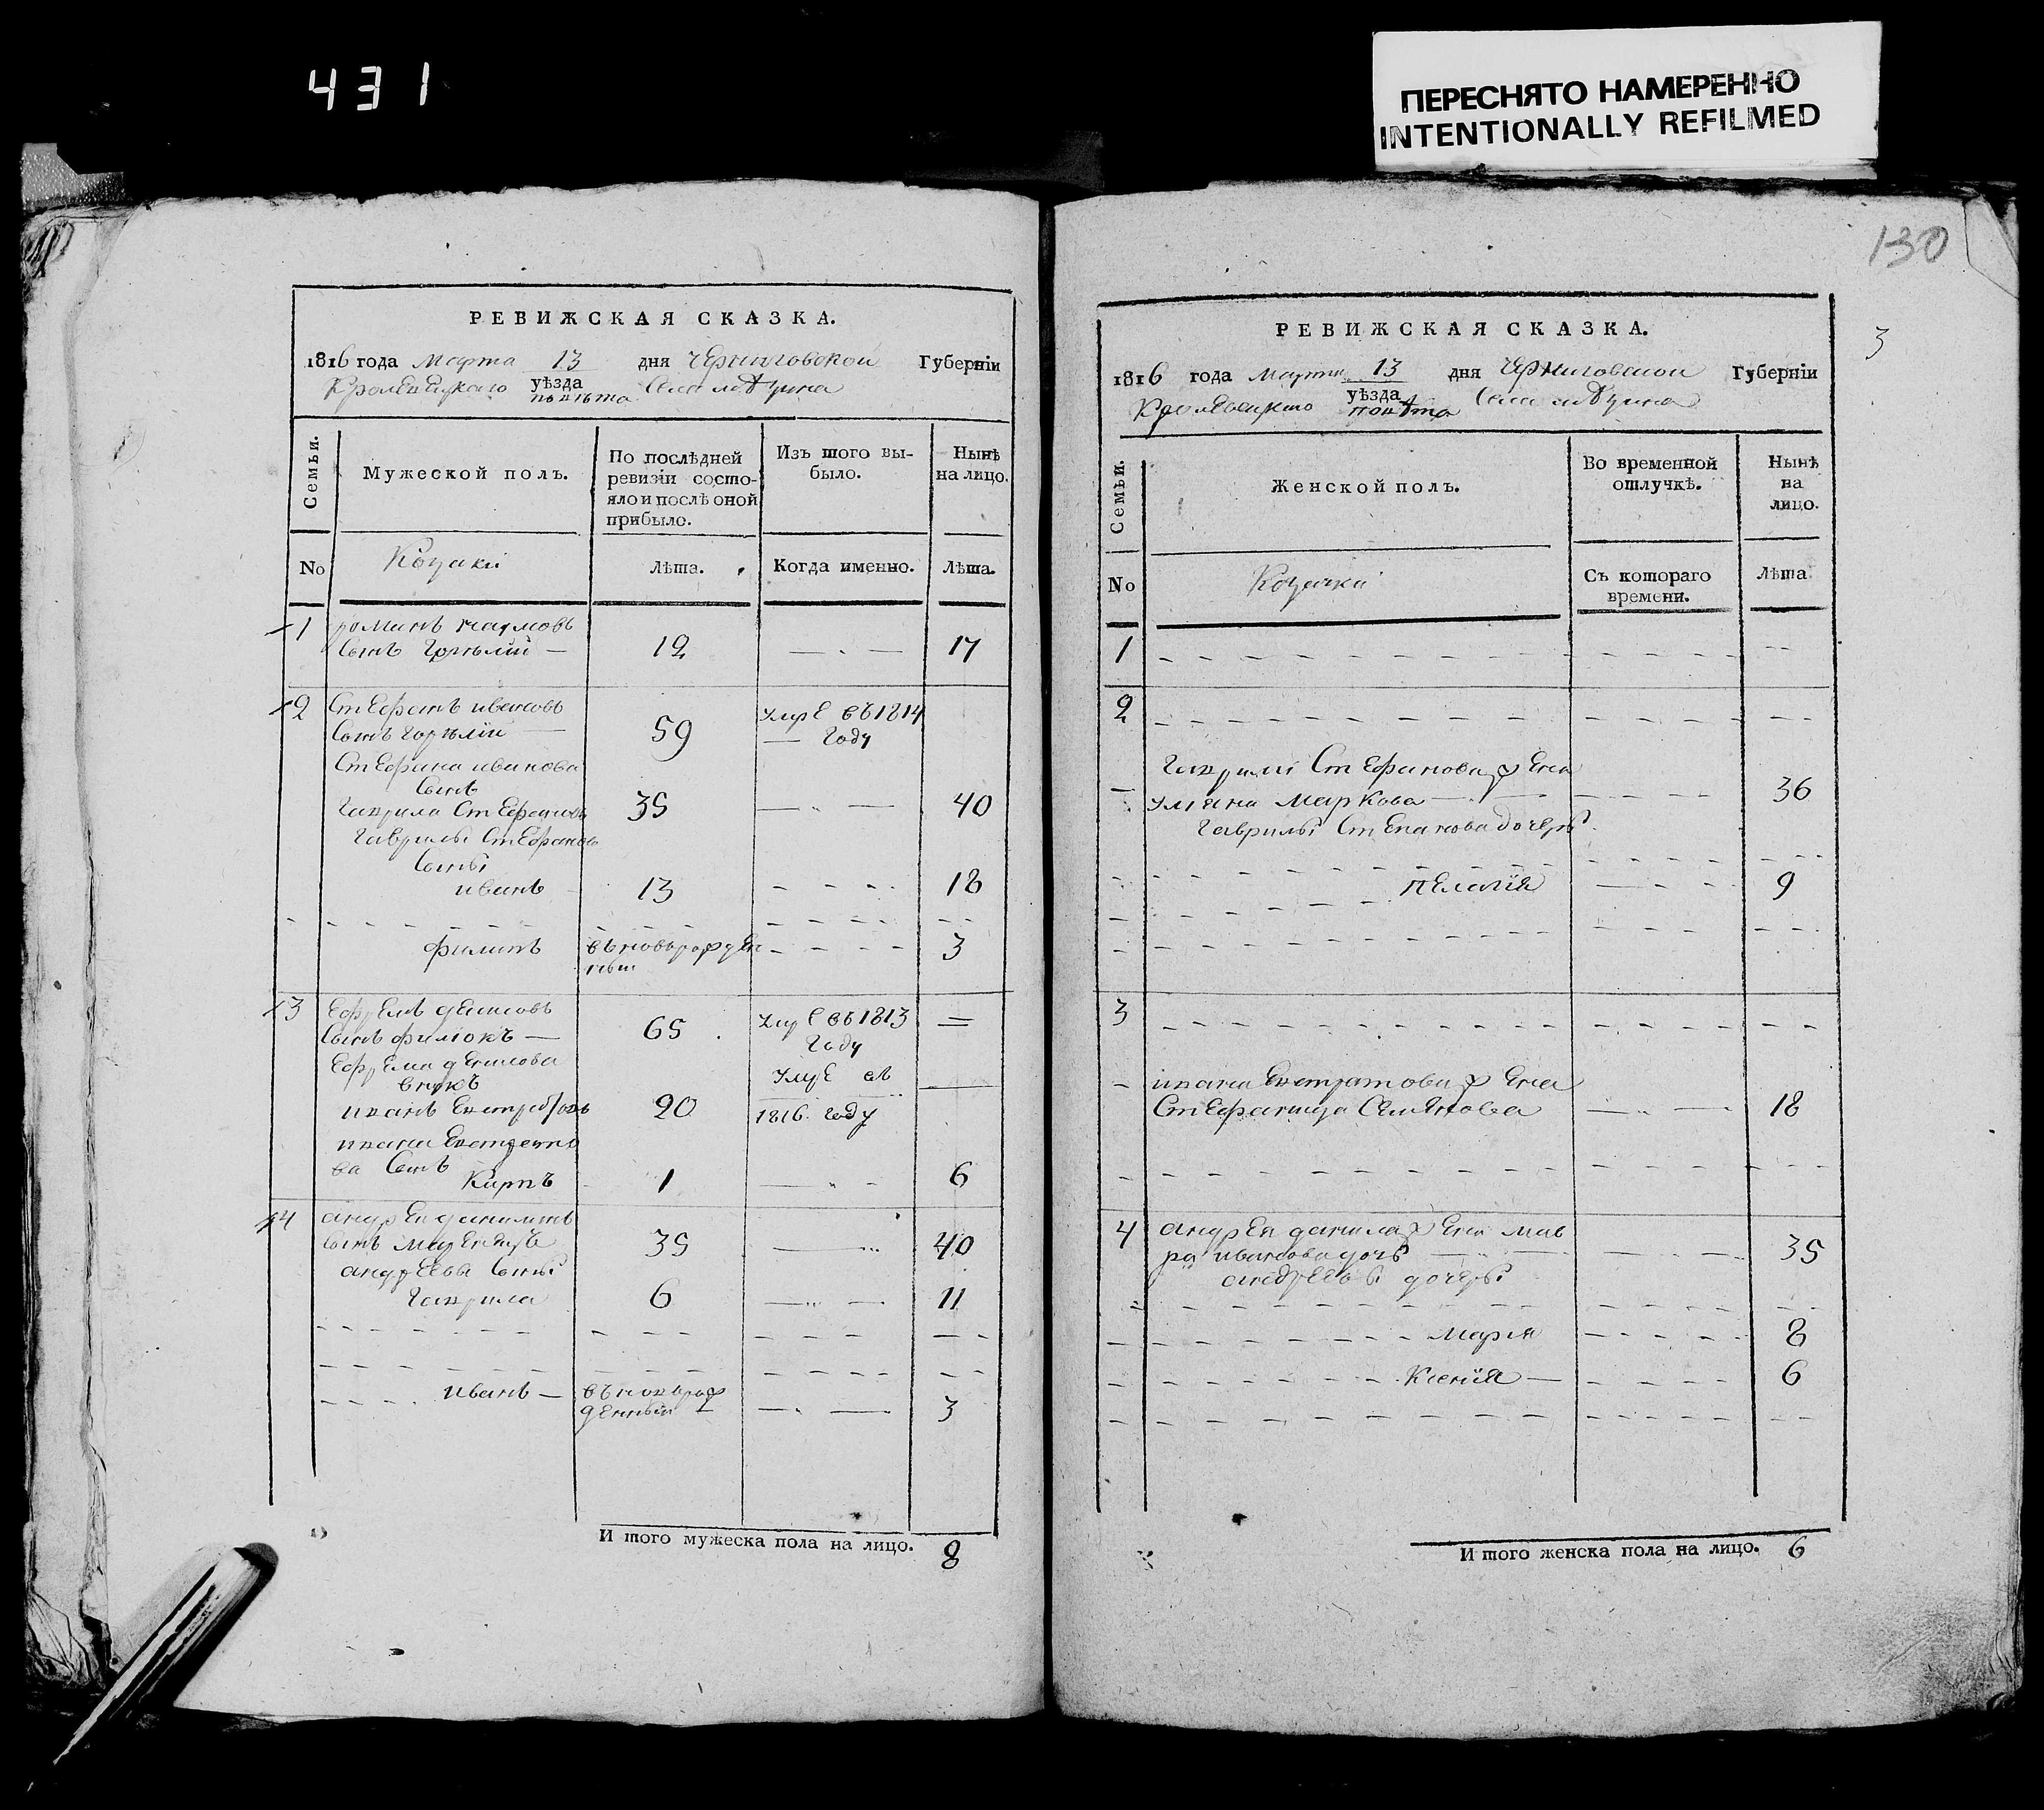 431
ПЕРЕСНЯТО НАМЕРЕННО
INTENTIONALLY REFILMED
РЕВИЖСКАЯ СКАЗКА.
1816 года марта 13 дня черниговской Губерніи
Кролевецкаго уѣзда повѣта Села
Семьи.
Мужеской полъ.
По послѣдней ревизіи состояло и послѣ оной прибыло.
Изъ того выбыло.
Нынѣ на лицо.
No
Козаки
Лѣта.
Когда именно.
Лѣта.
1 романъ наумовъ
сынъ 12 17
2 Стефанъ ивановъ умре въ 1814
сынъ горѣлій 59 году
Стефана иванова
сынъ
гаврила Стефановъ 35 40
гаврилы Стефанова
сыны
иванъ 13 18
филипъ 3
3 ефремъ денисовъ умре въ 1813
сынъ 65 году
ефрема денисова умре въ
внукъ
иванъ 20 1816 году
ивана
ва сынъ
Карпъ 1 6
4 андрей
сынъ 35 40
андреевы сыны
гаврила 6 11
иванъ — вновьрож
денный 3
И того мужеска пола на лицо. 8
130
3
РЕВИЖСКАЯ СКАЗКА.
1816 года марта 13 дня черниговской Губерніи
Кролевецкаго уѣзда повѣта Села
Семьи.
Женской полъ.
Во временной отлучкѣ.
Нынѣ на лицо.
No
Козачки
Съ котораго времени.
Лѣта
1
2
гаврилы Стефанова жена
уляна Маркова 36
гаврилы Степанова дочеры
пелагія 9
3
ивана жена
Стефанида Семенова 18
4 андрея данила жена мав
ра иванова дочь 35
андреевы дочеры
Марія 8
Ксенія 6
И того женска пола на лицо. 6